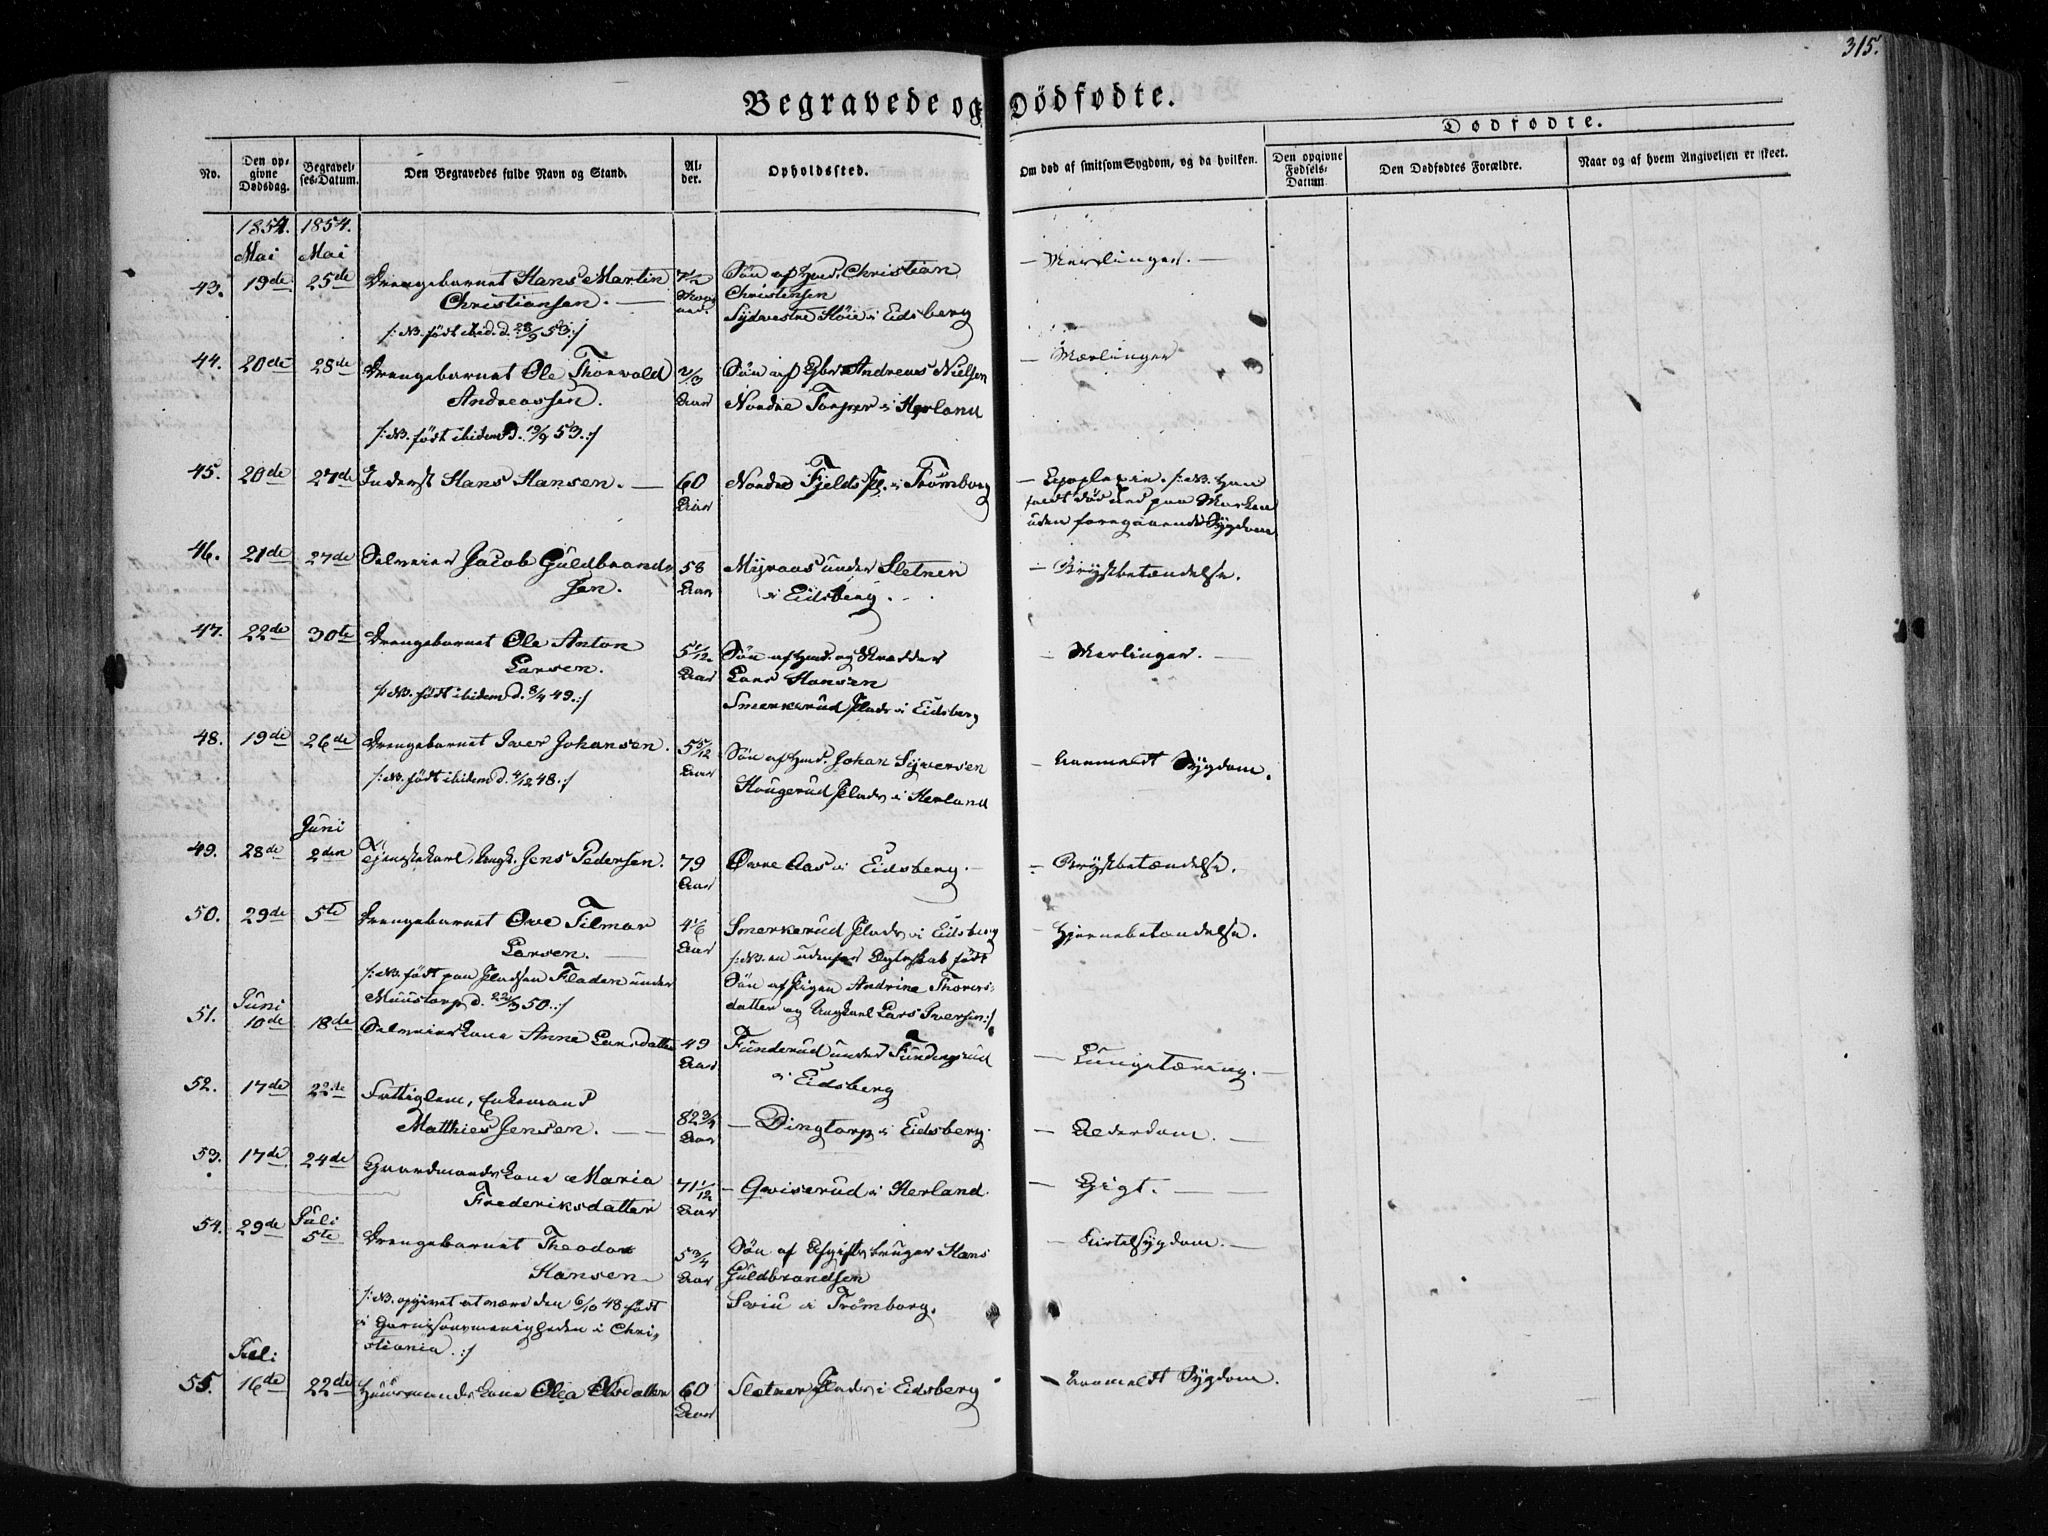 315.
Begravede og Dödfødte.
Dødfødte.
No.
Den opgivne Dødsdag.
Begravelses-Datum.
Den Begravedes fulde Navn og Stand.
Alder.
Opholdssted.
Om død af smitsom Sygdom, og da hvilken.
Den opgivne Fødsels-Datum.
Den Dødfødtes Forældre.
Naar og af hvem Angivelsen er skeet.
1854. 1854.
Mai Mai
43. 19de 25de Drengebarnet Hans Martin
Christiansen. —
/: NB. født ibid. d. 28/9 53 :/
7 1/2 Maaned.
Søn af Hmd. Christian
Christensen
Sydvestre Höie i Eidsberg
— Mæslinger. —
44. 20de 28de Drengebarnet Ole Thorvald
Andreassen.
/: NB. født ibidem d. 19/9 53 :/
2/3 Aar
Søn af Gbr. Andreas Nielsen
Nordre i Herland
— Mæslinger
45. 20de 27de Inderst Hans Hansen. —
60 Aar
Nordre Fjelds Pl. i Trömborg
— Apoplexie. /: NB. Han
faldt død ned paa Marken
uden foregaaende Sygdom
46. 21de 27de Selveier Jacob Guldbrand-
sen.
58 Aar
Myraas under Sletner
i Eidsberg.
— Brystbetændelse.
47. 22de 30te Drengebarnet Ole Anton
Larsen.
/: NB. født ibidem d. 8/4 49. :/
5 1/12 Aar
Søn af Hmd. og Skrædder
Lars Hansen
Smerkerud Plads i Eidsberg
— Mæslinger. —
48. 19de 26de Drengebarnet Iver Johansen.
/: NB. født ibidem d. 4/12 48. :/
5 5/12 Aar
Søn af Hmd. Johan Syversen
Hougerud Plads i Herland
— Uanmeldt Sygdom.
Juni
49. 28de 2den Tjenestekarl, Ungk. Jens Pedersen.
79 Aar
Øvre Aas i Eidsberg. —
— Brystbetændelse.
50. 29de 5te Drengebarnet Ove Tilmar
Larsen. —
/: NB. født paa Pladsen Fladen under
Muustorp d. 22/3 50. :/
4 1/6 Aar
Smerkerud Plads i Eidsberg
/: NB. en udenfor Ægteskab født
Søn af Pigen Andrine Thorers-
datter og Ungkarl Lars Iversen :/
Hjernebetændelse.
Juni
51. 10de 18de Selveierkone Anne Larsdatter
49 Aar
Funderud under Fundingrud
i Eidsberg
— Lungetæring. —
52. 17de 22de Fattiglem, Enkemand
Matthies Jensen. —
82 3/4 Aar
— Dingtorp i Eidsberg.
— Alderdom. —
53. 17de 24de Gaardmandskone Maria
Frederiksdatter
71 1/12 Aar
— Qviserud i Herland.
— Gigt. —
Juli
54. 29de 5te Drengebarnet Theodor
Hansen —
/: NB. opgivet at være den 6/10 48 født
i Garnisonsmenigheden i Chri-
stiania. :/
5 3/4 Aar
Søn af Afgiftsbruger Hans
Guldbrandsen
i Trömborg.
— Kirtelsygdom. —
Juli
55. 16de 22de Huusmandskone Olea Olsdatter
60 Aar
Sletner Plads i Eidsberg
— Uanmeldt Sygdom.